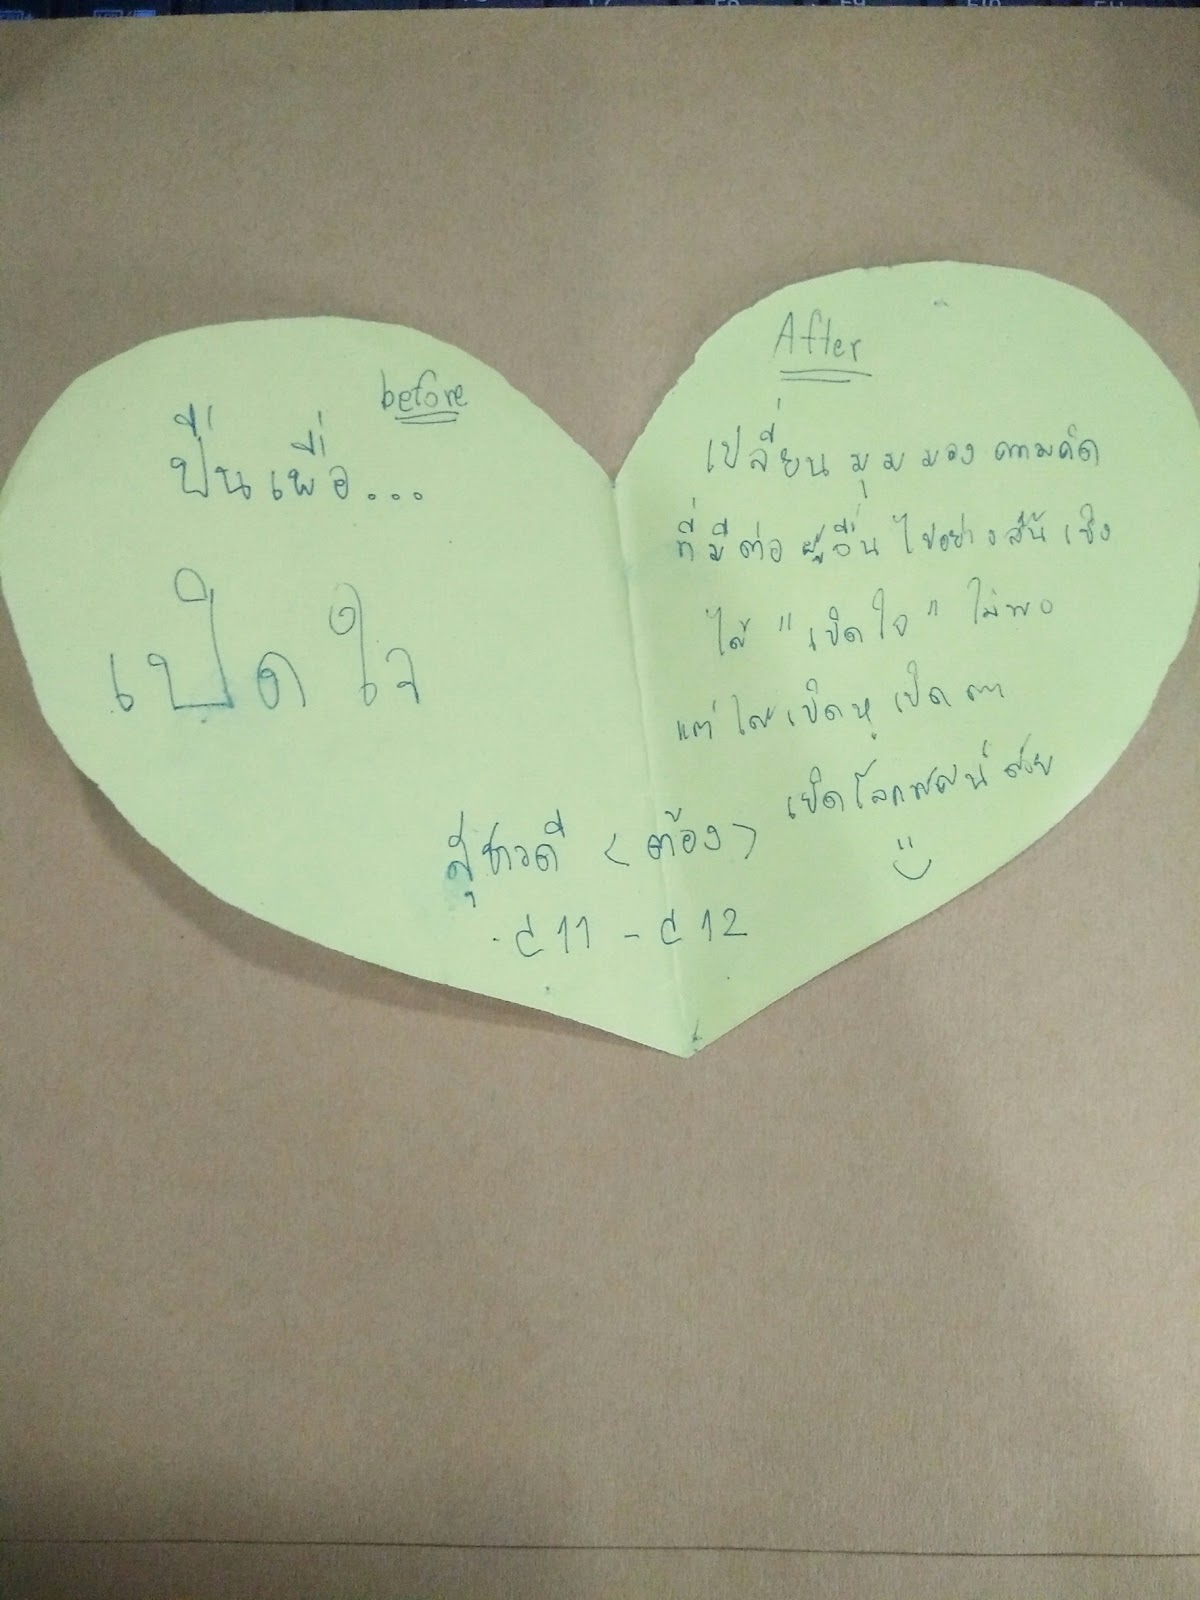 before
ปั่นเพื่อ...
เปิดใจ
After
เปลี่ยนมุมมองความคิด
ที่มีต่อผู้อื่นไปอย่างสิ้นเชิง
ได้ "เปิดใจ" ไม่พอ
แต่ได้เปิดหู เปิดตา
เปิดโลกทัศน์ด้วย
สุชาวดี <ต้อง>
C11 - C12